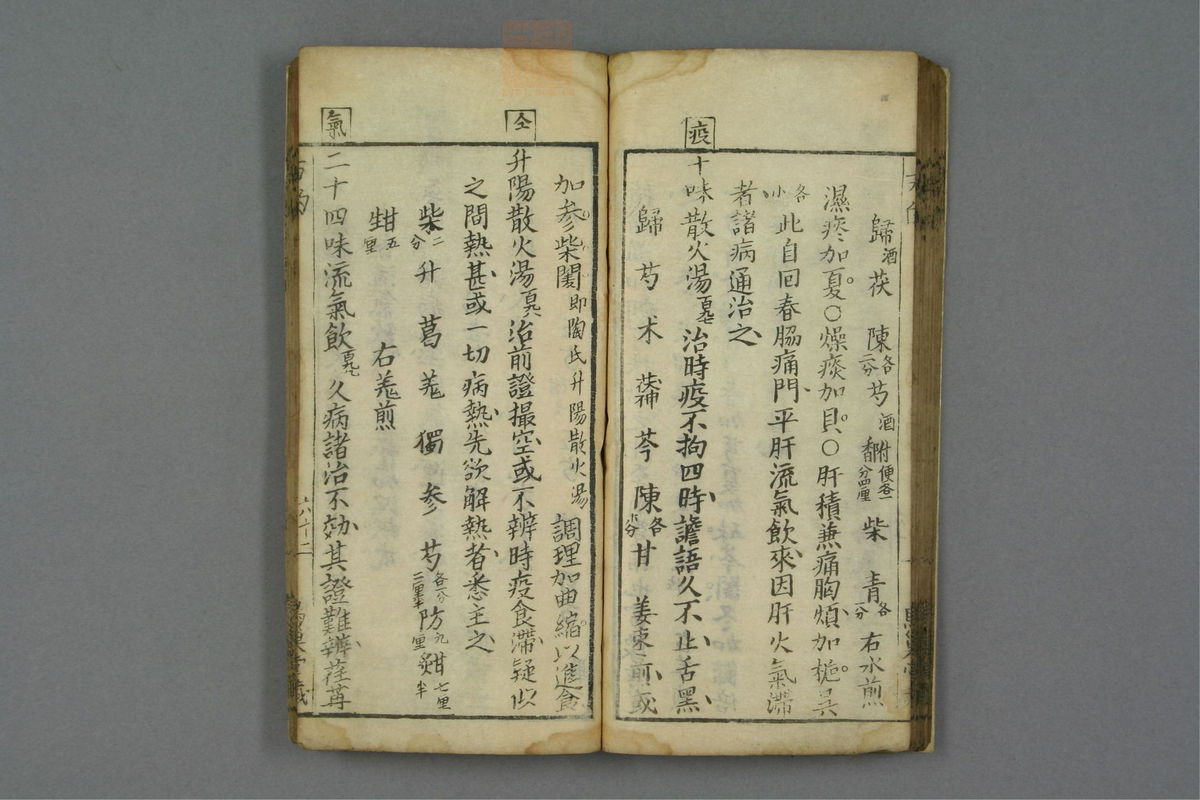 疫
歸酒 茯 陳各二分 芍酒 附便各一 香分四厘 柴 青各一分 右水煎
濕痰加夏○燥痰加貝○肝積兼痛胸煩加梔呉
各小 此自回春脇痛門平肝流氣飲來因肝火氣滞
者諸病通治之
十味散火湯 治時疫不拘四時譫語久不止舌黑
歸 芍 术 茯神 芩 陳各 甘 姜棗煎或
仝
氣
加参柴闔即陶氏升陽散火湯 調理加曲縮以進食
升陽散火湯 治前證撮空或不辨時疫食滞疑似
之間熱甚或一切病熱先欲解熱者悉主之
柴二分 升 葛 羌 獨 参 芍各二分二厘半 防九厘 甜七厘半
甘五厘 右羌煎
二十四味流氣飲 久病諸治不効其證難辨荏苒
六十二